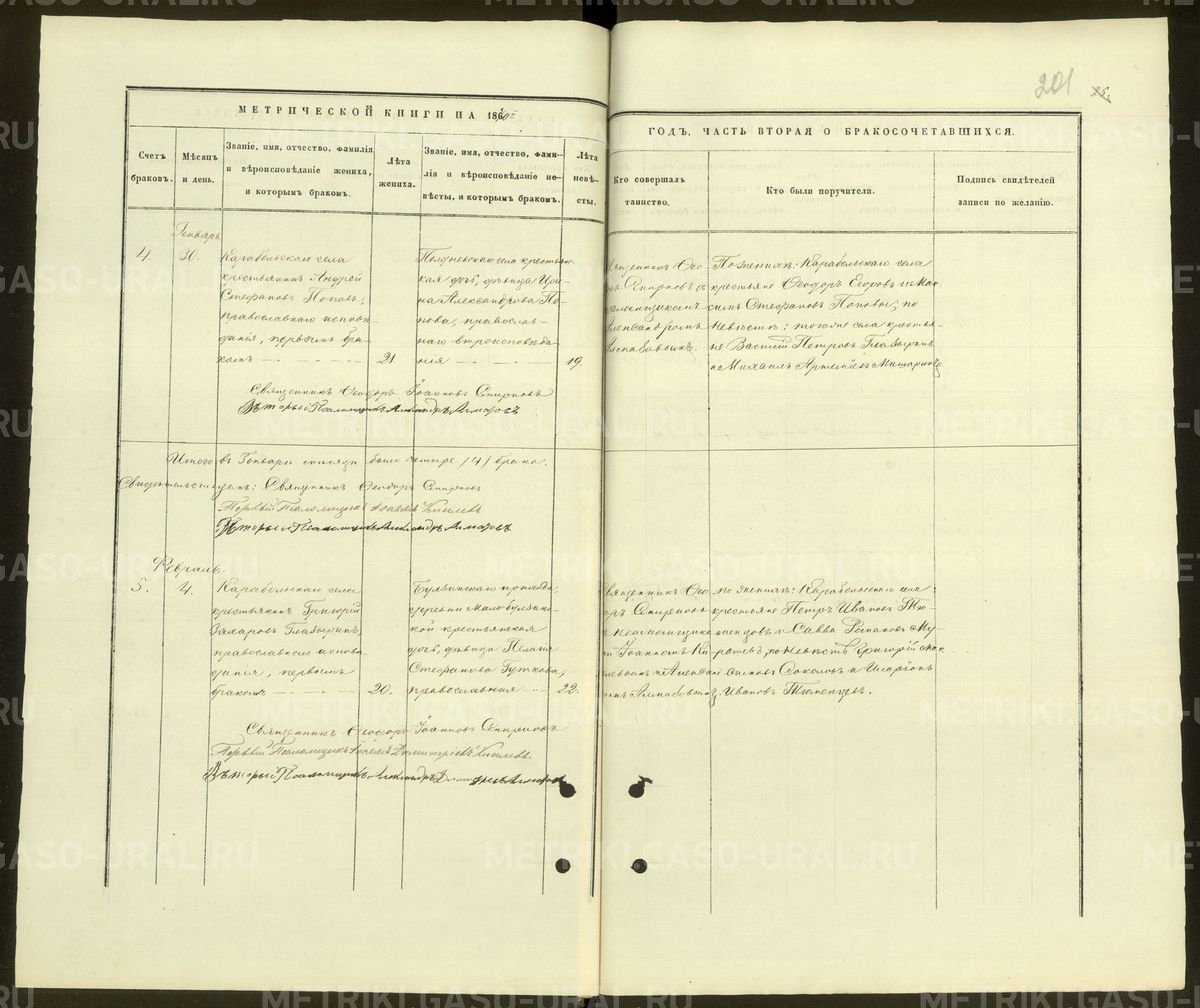 201
25.
МЕТРИЧЕСКОЙ КНИГИ НА 186
ГОДЪ, ЧАСТЬ ВТОРАЯ О БРАКОСОЧЕТАВШИХСЯ.
Счетъ браковъ.
Мѣсяцъ и день.
Званіе, имя, отчество, фамилія
и вѣроисповѣданіе жениха,
и которымъ бракомъ.
Лѣта
жениха.
Званіе, имя, отчество, фами-
лія и вѣроисповѣданіе не-
вѣсты, и которымъ бракомъ.
Лѣта
невѣ-
сты.
Кто совершалъ
таинство.
Кто были поручители.
Подпись свидѣтелей
записи по желанію.
Генварь.
4.
30.
Карабольскаго села
крестьянинъ Андрей
Стефановъ Поповъ,
православнаго исповѣ-
данія, первымъ бра-
комъ
21.
села крестьян-
ская дочь, дѣвица Ири-
на Александрова По-
пова, православ-
наго вѣроисповѣда-
нія
19.
Священникъ Ѳео-
Смирновъ съ
псаломщикомъ
Александромъ
По женихѣ: Карабольскаго села
крестьяне Ѳеодоръ Егоровъ и Мак-
симъ Стефановъ Поповы; по
невѣстѣ: тогоже села крестья-
не Василій Петровъ Глазыринъ
и Михаилъ Артемьевъ
Священникъ Ѳеодоръ Іоанновъ Смирновъ
Вторый Псаломщикъ Александръ
Итого въ Генварѣ мѣсяцѣ было четыре /4/ брака.
Священникъ Ѳеодоръ Смирновъ
Первый Псаломщикъ Іоаннъ Киселевъ
Вторый Псаломщикъ Александръ
Февраль.
5.
4.
Карабольскаго села
крестьянинъ Григорій
Захаровъ Глазыринъ,
православнаго испове-
данія, первымъ
бракомъ
20.
Булзинскаго прихода,
деревни Мало-булзин-
кой крестьянская
дочь, дѣвица
Стефанова Гуткова,
православная
22.
Священникъ Ѳео-
Смирновъ
псаломщика-
Іоанномъ Ки-
селевымъ и Алексан-
по женихѣ: Карабольскаго села
крестьяне Петръ Ивановъ Тю-
менцовъ и Савва
по невѣстѣ Григорій Мак-
симовъ Соколовъ и Иларіонъ
Ивановъ Тюменцовъ.
Священникъ Ѳеодоръ Іоанновъ Смирновъ
Первый Псаломщикъ Іоаннъ Димитріевъ Киселевъ.
Вторый Псаломщикъ Александръ
METRIKI.GASO-URAL.RU